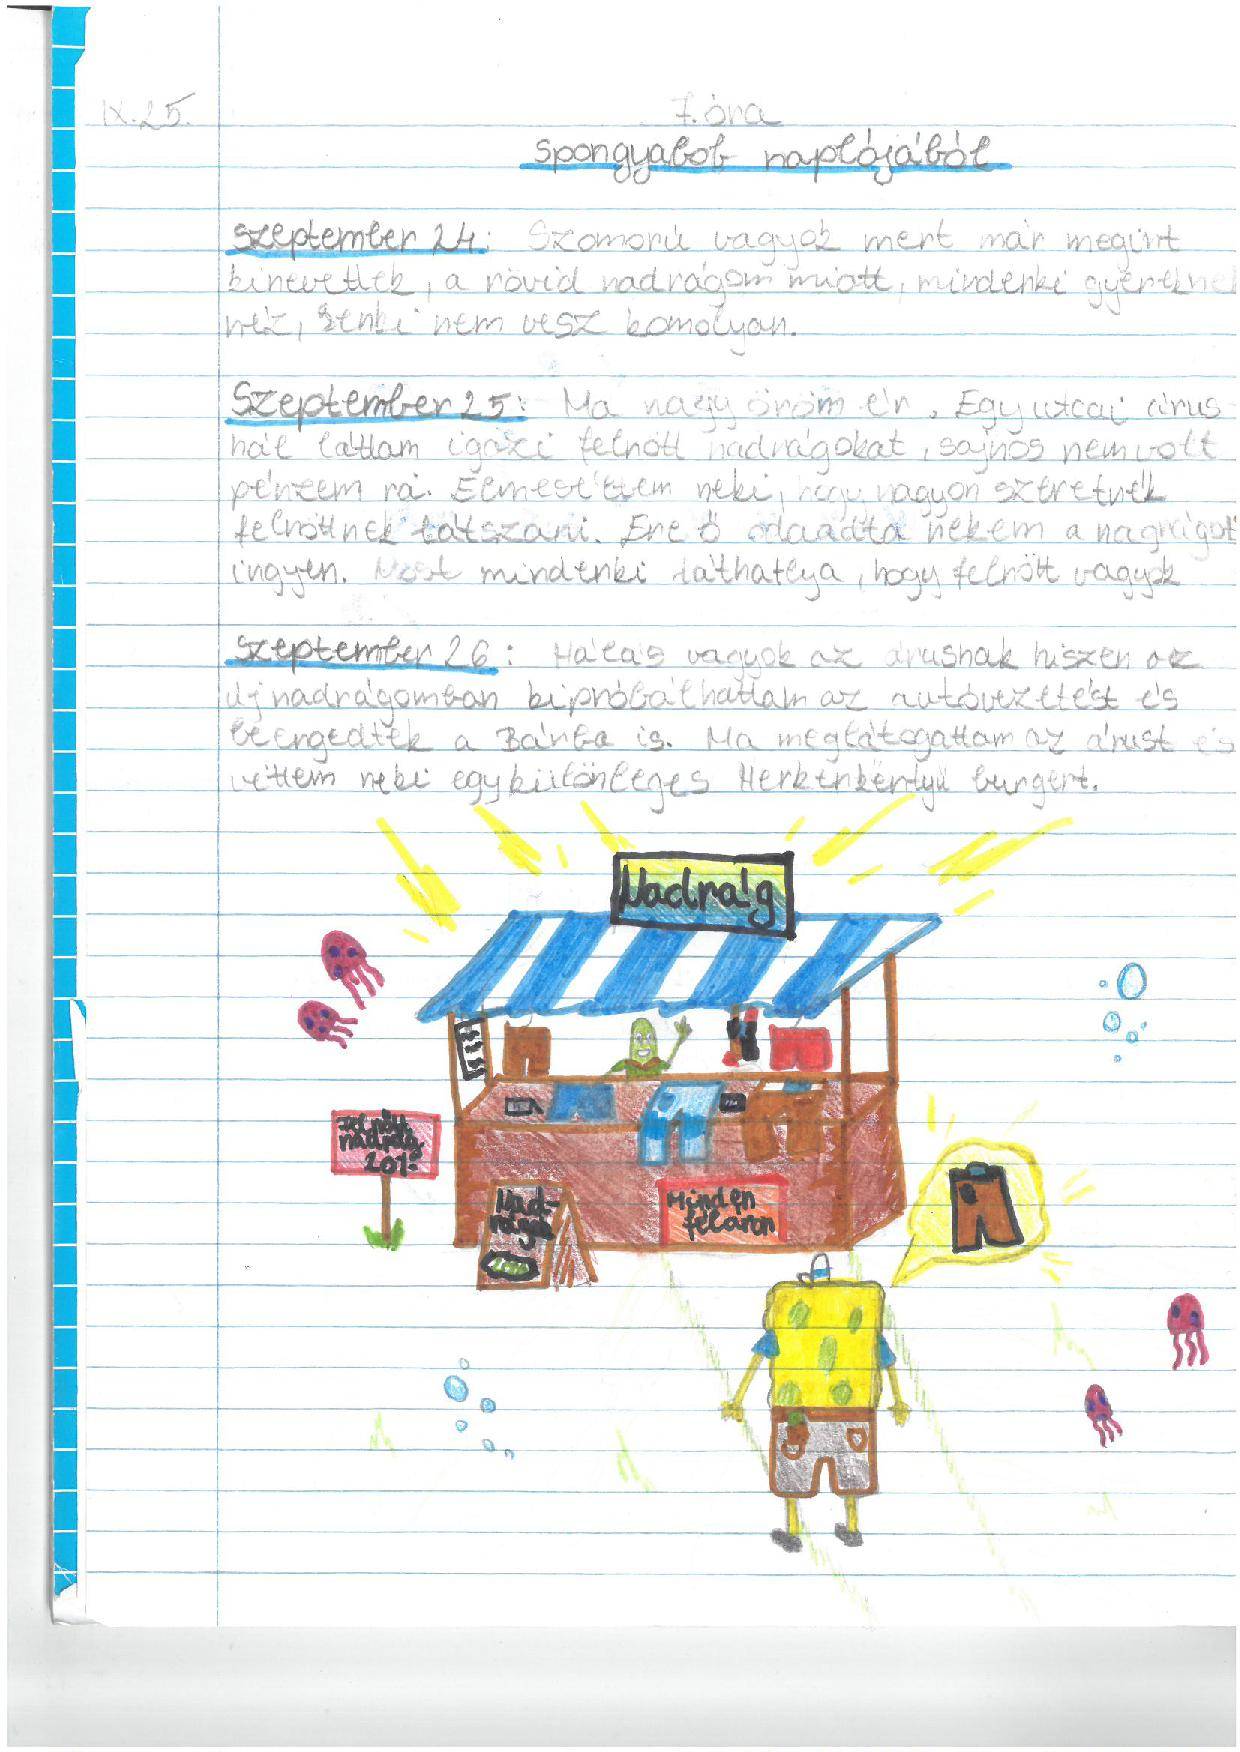 IX.25.
7. óra
Spongyabob naplójából
Szeptember 24: Szomorú vagyok mert már megint
kinevettek, a rövid nadrágom miatt, mindenki gyereknek
néz, senki nem vesz komolyan.
Szeptember 25: Ma nagy öröm ér. Egy utcai árus-
nál láttam igazi felnőtt nadrágokat, sajnos nem volt
pénzem rá. Elmeséltem neki, hogy nagyon szeretnék
felnőttnek látszani. Erre ő odaadta nekem a nagrágot
ingyen. Most mindenki láthatlya, hogy felnőtt vagyok
Szeptember 26: Hálás vagyok az árusnak hiszen az
új nadrágomban kipróbálhattam az autóvezetést és
beengedtek a Bárba is. Ma meglátogattam az árust és
vettem neki egy különleges Herkenkentyű burgert.
Nadrág
Felnőtt
nadrág
20%
Nad-
rágok
Minden
féláron